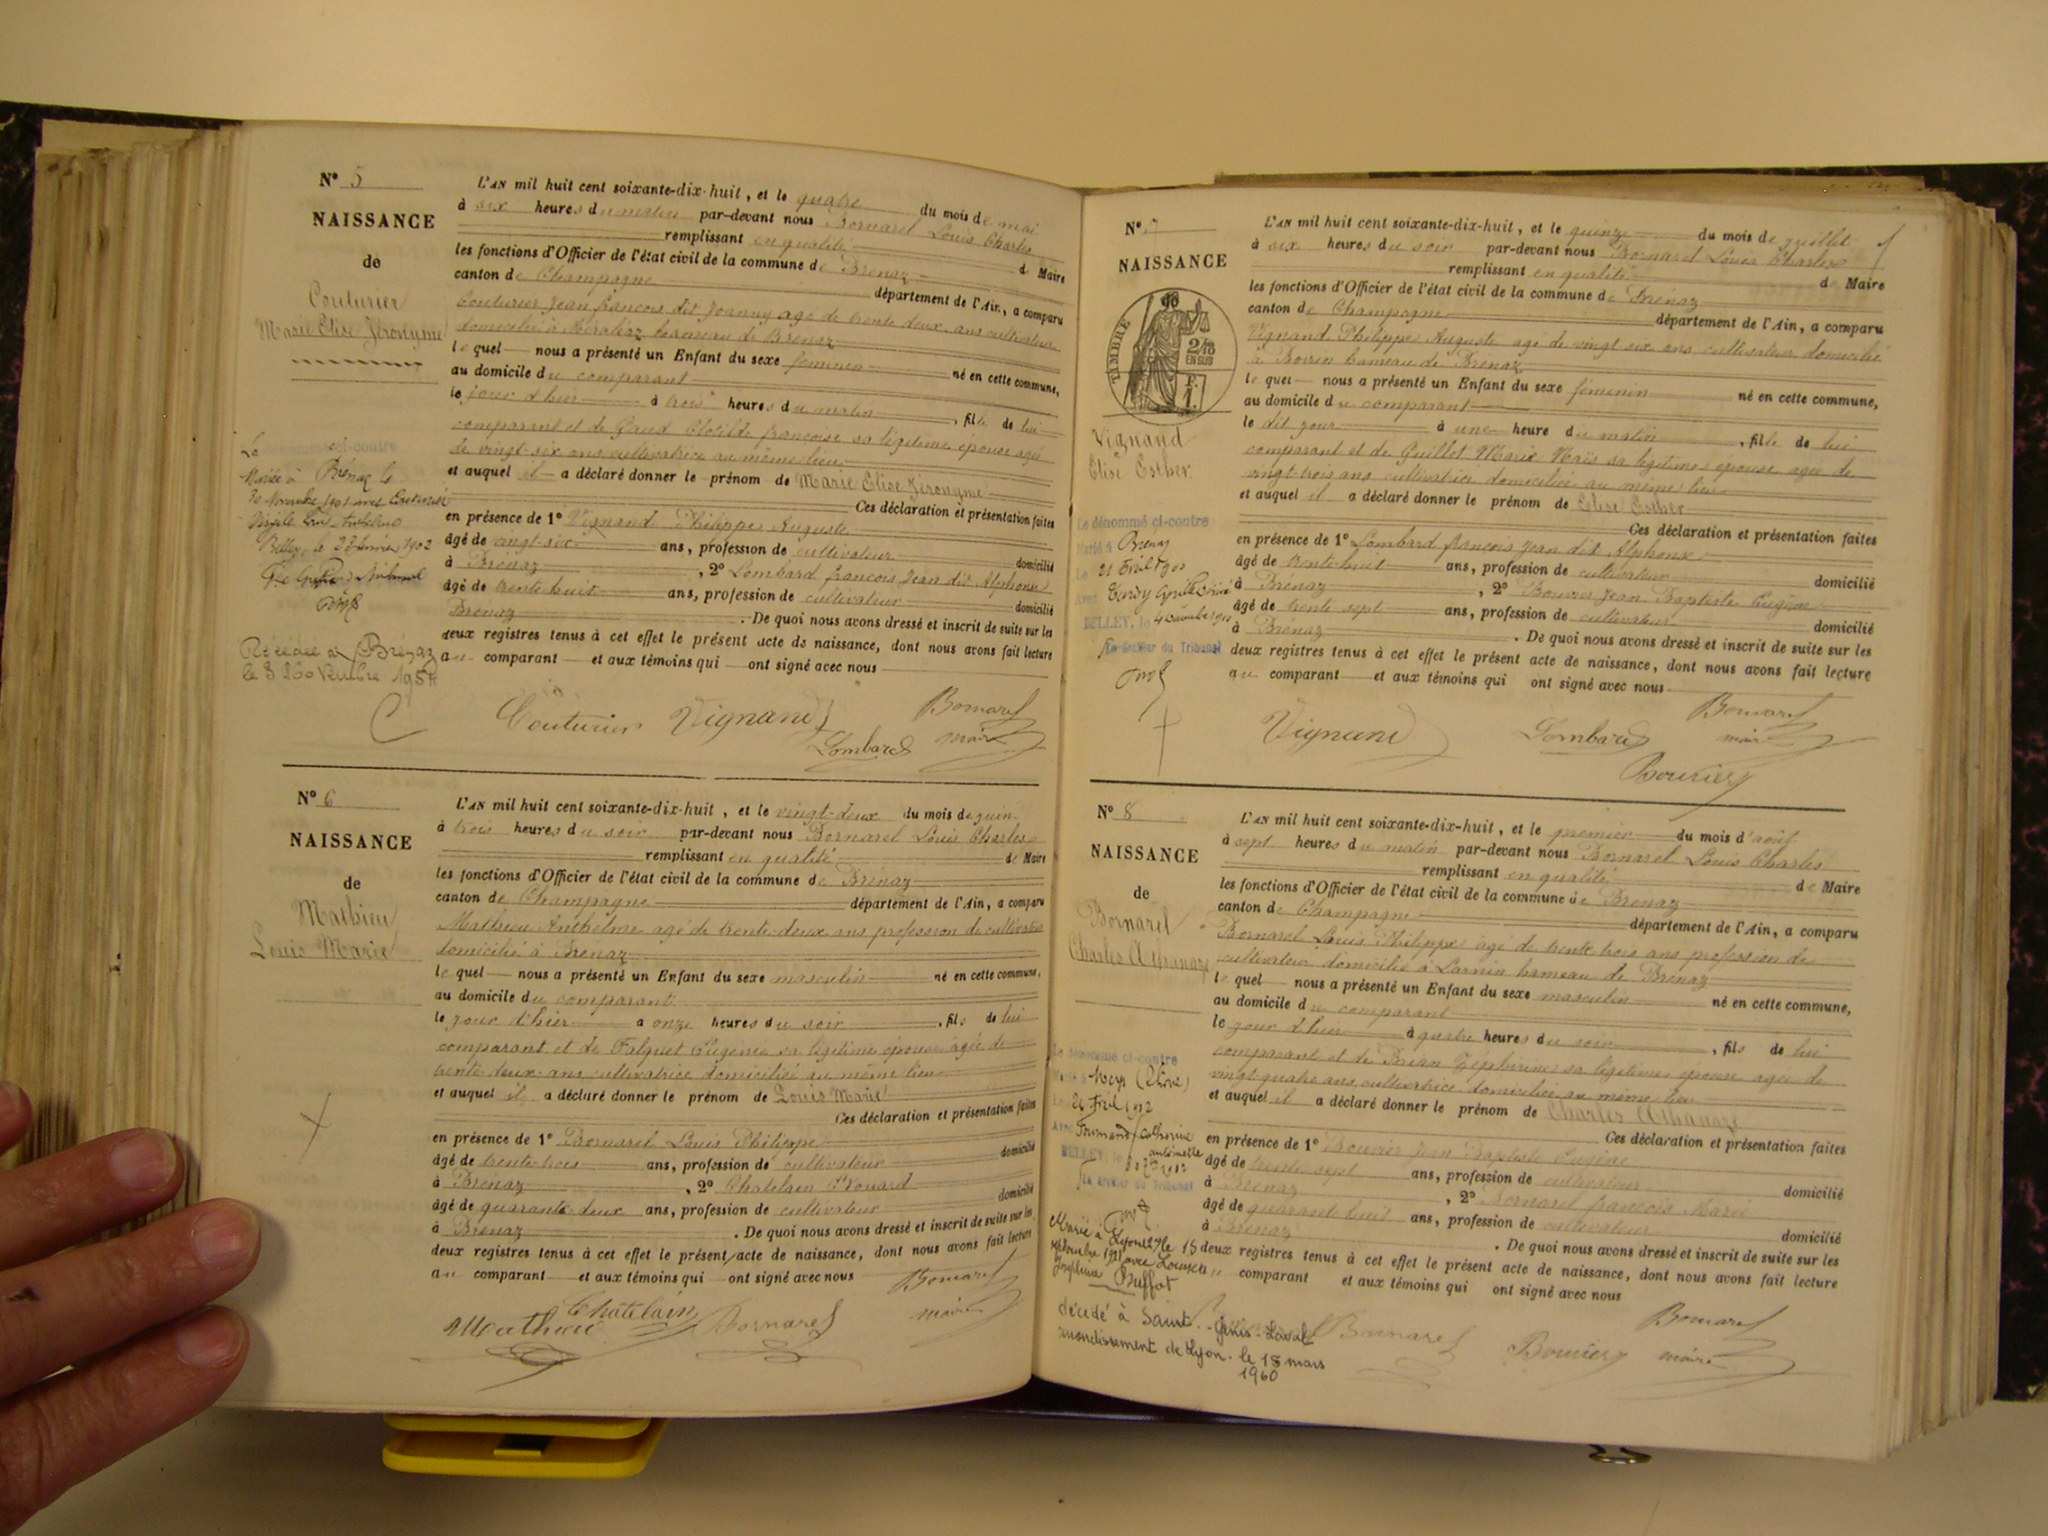 N° 5
NAISSANCE
de
Couturier
Marie Elise Jéronyme
L'AN mil huit cent soixante-dix-huit, et le quatre du mois de mai
à six heures du matin par-devant nous Bornarel Louis Charles
remplissant en qualité de Maire
les fonctions d'Officier de l'état civil de la commune de Brénaz
canton de Champagne département de l'Ain, a comparu
Couturier Jean françois dit Joanny agé de trente deux ans cultivateur
domicilié à hameau de Brénaz
lequel nous a présenté un Enfant du sexe féminin né en cette commune,
au domicile du comparant
le jour d'hier à trois heures du matin, fille de lui
comparant et de Clotilde françoise sa légitime épouse agée
de vingt six ans cultivatrice au même lieu
et auquel il a déclaré donner le prénom de Marie Elise Jéronyme
Ces déclaration et présentation faites
en présence de 1° Vignand Philippe Auguste
âgé de vingt-six ans, profession de cultivateur domicilié
à Brénaz, 2° Lombard françois Jean dit Alphonse
âgé de trente huit ans, profession de cultivateur domicilié
Brénaz. De quoi nous avons dressé et inscrit de suite sur les
deux registres tenus à cet effet le présent acte de naissance, dont nous avons fait lecture
au comparant et aux témoins qui ont signé avec nous
ci-contre
Mariée à Brénaz le
Novembre 1901 avec
Belley, le 1902
Décédée à Brénaz
le 8 Novembre 1954
Couturier Vignand Bornarel
Lombard maire
N° 6
NAISSANCE
de
Mathieu
Louis Marie
L'AN mil huit cent soixante-dix-huit, et le vingt-deux du mois de juin
à trois heures du soir par-devant nous Bornarel Louis Charles
remplissant en qualité de Maire
les fonctions d'Officier de l'état civil de la commune de Brénaz
canton de Champagne département de l'Ain, a comparu
Mathieu Anthelme agé de trente-deux ans profession de cultivateur
domicilié à Brénaz
lequel nous a présenté un Enfant du sexe masculin né en cette commune,
au domicile du comparant
le jour d'hier à onze heures du soir, fils de lui
comparant et de Falquet Eugénie sa légitime épouse agée de
trente deux ans cultivatrice domiciliée au même lieu
et auquel il a déclaré donner le prénom de Louis Marie
Ces déclaration et présentation faites
en présence de 1° Bornarel Louis Philippe
âgé de trente-trois ans, profession de cultivateur domicilié
à Brénaz, 2° Chatelain
âgé de quarante deux ans, profession de cultivateur domicilié
à Brénaz. De quoi nous avons dressé et inscrit de suite sur les
deux registres tenus à cet effet le présent acte de naissance, dont nous avons fait lecture
au comparant et aux témoins qui ont signé avec nous
Bornarel
Mathieu Châtelain Bornarel maire
N° 7
NAISSANCE
TIMBRE
2/10
EN SUS
F.
1.
Vignand
Elise Esther
L'AN mil huit cent soixante-dix-huit, et le quinze du mois de juillet
à six heures du soir par-devant nous Bornarel Louis Charles
remplissant en qualité de Maire
les fonctions d'Officier de l'état civil de la commune de Brénaz
canton de Champagne département de l'Ain, a comparu
Vignand Philippe Auguste agé de vingt six ans cultivateur domicilié
à hameau de Brénaz
lequel nous a présenté un Enfant du sexe féminin né en cette commune,
au domicile du comparant
le dit jour à une heure du matin, fille de lui
comparant et de Guillet Marie sa légitime épouse agée de
vingt-trois ans cultivatrice domiciliée au même lieu
et auquel il a déclaré donner le prénom de Elise Esther
Ces déclaration et présentation faites
en présence de 1° Lombard françois Jean dit Alphonse
âgé de trente-huit ans, profession de cultivateur domicilié
à Brénaz, 2° Bouvier Jean Baptiste Eugène
âgé de trente sept ans, profession de cultivateur domicilié
à Brénaz. De quoi nous avons dressé et inscrit de suite sur les
deux registres tenus à cet effet le présent acte de naissance, dont nous avons fait lecture
au comparant et aux témoins qui ont signé avec nous
Le dénommé ci-contre
Marié à Brénaz
Le 21
Avec
BELLEY, le
Le Greffier du Tribunal
Vignand Lombard Bornarel
maire
Bouvier
N° 8
NAISSANCE
de
Bornarel
Charles Athanaze
L'AN mil huit cent soixante-dix-huit, et le premier du mois d'août
à sept heures du matin par-devant nous Bornarel Louis Charles
remplissant en qualité de Maire
les fonctions d'Officier de l'état civil de la commune de Brénaz
canton de Champagne département de l'Ain, a comparu
Bornarel Louis Philippe agé de trente trois ans profession de
cultivateur domicilié à hameau de Brénaz
lequel nous a présenté un Enfant du sexe masculin né en cette commune,
au domicile du comparant
le jour d'hier à quatre heures du soir, fils de lui
comparant et de Zéphirine sa légitime épouse agée de
vingt-quatre ans cultivatrice domiciliée au même lieu
et auquel il a déclaré donner le prénom de Charles Athanaze
Ces déclaration et présentation faites
en présence de 1° Bouvier Jean Baptiste Eugène
âgé de trente sept ans, profession de cultivateur domicilié
à Brénaz, 2° Bornarel françois Marie
âgé de quarante huit ans, profession de cultivateur domicilié
à Brénaz. De quoi nous avons dressé et inscrit de suite sur les
deux registres tenus à cet effet le présent acte de naissance, dont nous avons fait lecture
au comparant et aux témoins qui ont signé avec nous
Le dénommé ci-contre
Marié à Meys (Rhône)
Avec Catherine
antoinette
BELLEY, le
Le Greffier du Tribunal
Marié à Lyon le 15
septembre 1921 avec Louise
Joséphine Buffat
décédé à Saint-Genis-Laval
arrondissement de Lyon le 18 mars
1960
Bornarel Bouvier Bornarel
maire